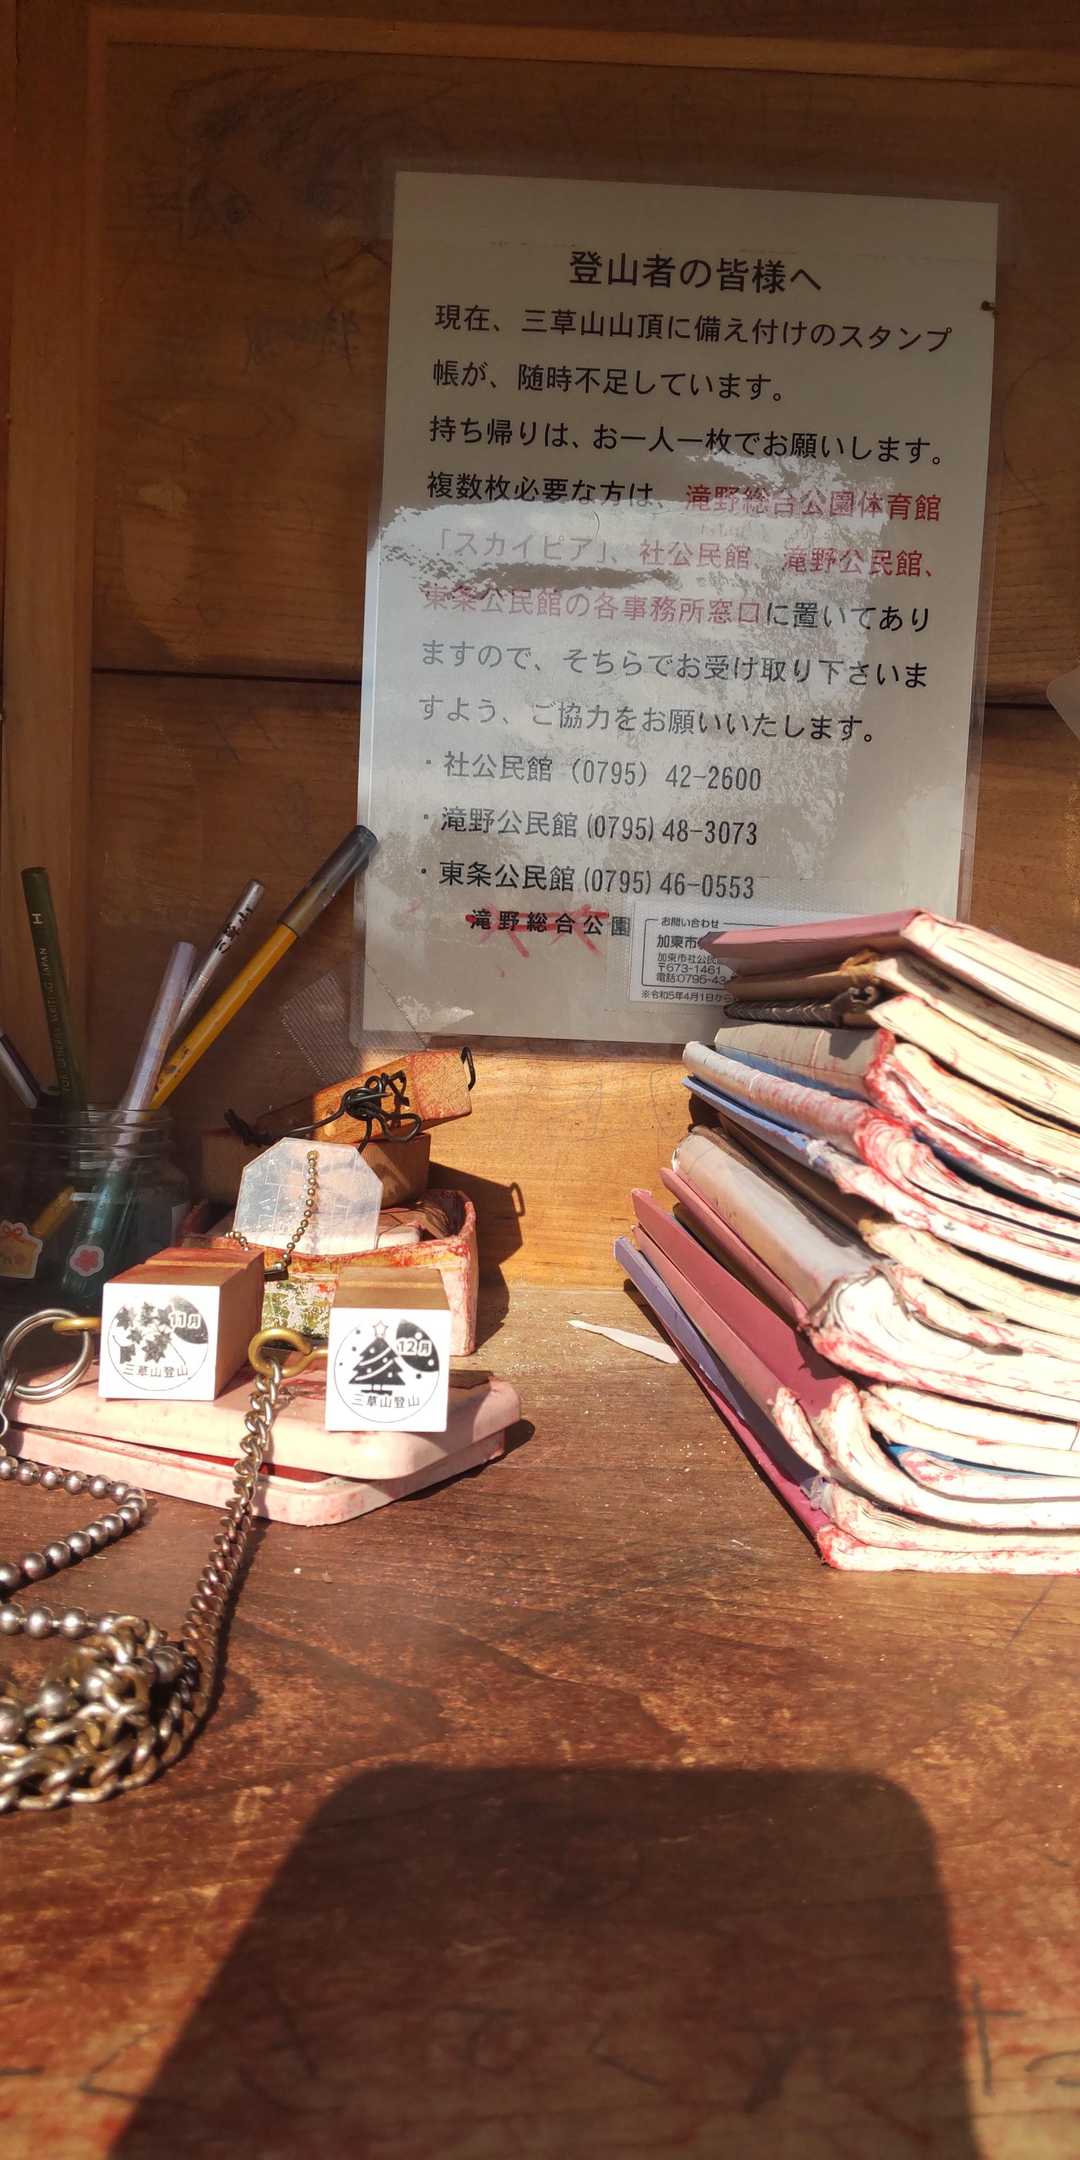 登山者の皆様へ
現在、三草山山頂に備え付けのスタンプ
帳が、随時不足しています。
持ち帰りは、お一人一枚でお願いします。
複数枚必要な方は、滝野総合公園体育館
「スカイピア」、社公民館、滝野公民館、
東条公民館の各事務所窓口に置いてあり
ますので、そちらでお受け取り下さいま
すよう、ご協力をお願いいたします。
・社公民館 (0795) 42-2600
・滝野公民館 (0795) 48-3073
・東条公民館 (0795) 46-0553
滝野総合公園
お問い合わせ
加東市
加東市社公民
〒673-1461
電話:0795-43-
※令和5年4月1日から
H
FOR GENERAL WRITING JAPAN
11月
三草山登山
12月
三草山登山